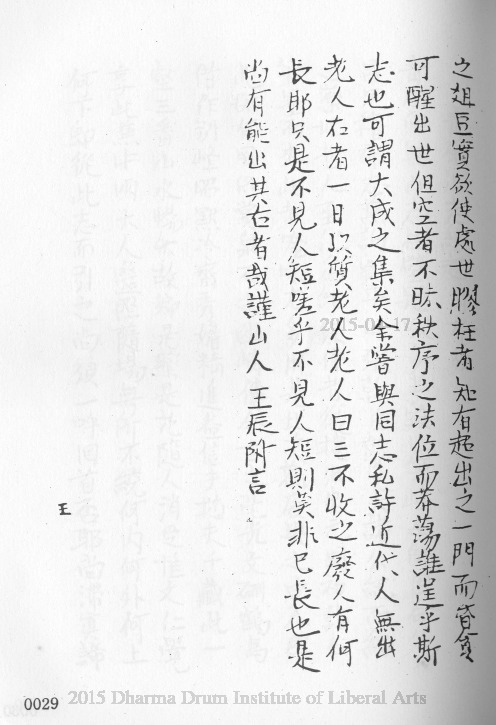 之俎豆實欲使處世膠柱者知有超出之一門而資貪
可醒出世但空者不昧秩序之法位而莽蕩誰逞乎斯
志也可謂大成之集矣余嘗與同志私許近代人無出
老人右者一日以質老人老人曰三不收之廢人有何
長耶只是不見人短嗟乎不見人短則莫非已長也是
尚有能出其右者哉謹山人王辰附言
王
2015-04-17
0029
2015 Dharma Drum Institute of Liberal Arts